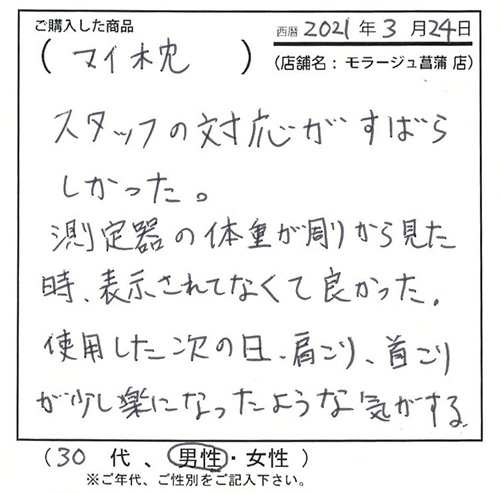 ご購入した商品
西暦 2021 年 3 月 24 日
( マイ枕 )
(店舗名：モラージュ菖蒲 店)
スタッフの対応がすばら
しかった。
測定器の体重が周りから見た
時、表示されてなくて良かった。
使用した次の日、肩こり、首こり
が少し楽になったような気がする
( 30 代 、 男性・女性 )
※ご年代、ご性別をご記入下さい。